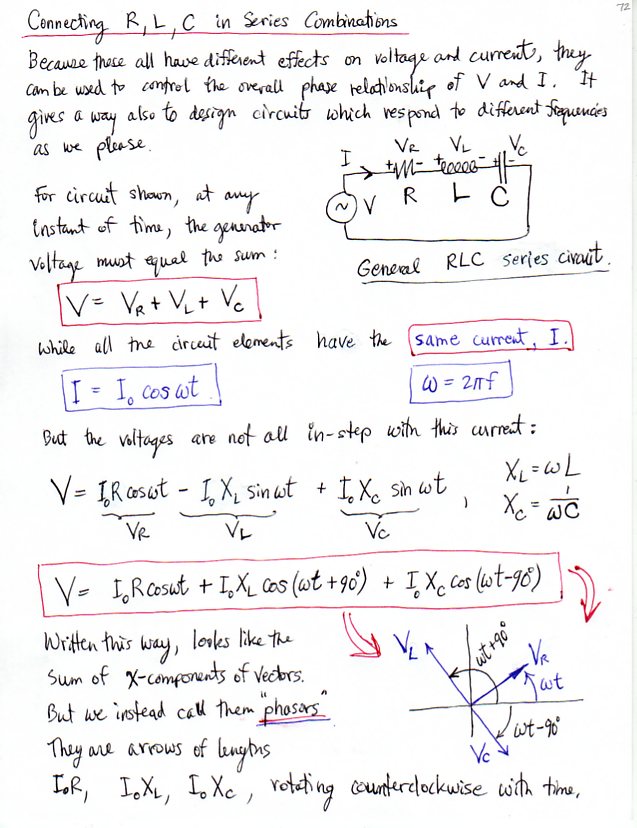 72
Connecting R, L, C in Series Combinations
Because these all have different effects on voltage and current, they
can be used to control the overall phase relationship of V and I. It
gives a way also to design circuits which respond to different frequencies
as we please.
VR VL VC
I + - + - + -
V R L C
General RLC series circuit.
For circuit shown, at any
instant of time, the generator
voltage must equal the sum:
V = VR + VL + VC
While all the circuit elements have the same current, I.
I = I₀ cos ωt
ω = 2πf
But the voltages are not all in-step with this current:
V = I₀R cos ωt - I₀ XL sin ωt + I₀ XC sin ωt ,
VR VL VC
XL = ωL
XC = 1/ωC
V = I₀R cos ωt + I₀ XL cos (ωt + 90°) + I₀ XC cos (ωt - 90°)
Written this way, looks like the
sum of x-components of vectors.
But we instead call them "phasors"
They are arrows of lengths
I₀R, I₀XL, I₀XC, rotating counterclockwise with time.
VL ωt + 90° VR
ωt
ωt - 90°
VC